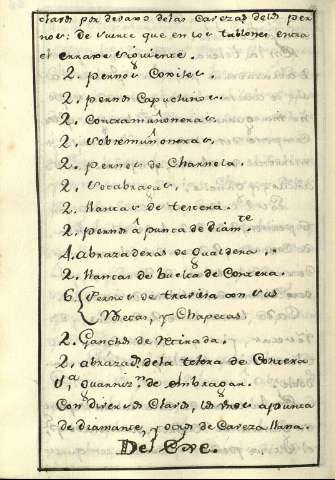 clavos por devaxo de las Cavezas de los per
nos: de suerte que en los tablones entra
el errage siguiente.
2. pernos Cofites.
2. pernos Capuchinos.
2. Contramuñoneras
2. Sobremuñoneras.
2. pernos de Charnela.
2. Socabragas.
2. Llantas de tercera.
2. pernos â punta de diamte.
4. abrazaderas de gualdera.
2. Llantas de buelta de Contera.
6. Pernos de travicsa con sus
Rosetas, y Chapetas
2. Ganchos de Retirada.
2. abrazads. de la telera de Contera
1,a guarnizn. de embragar.
Con diversos Clavos, los unos a punta
de diamante, y otros de Caveza llana.
Del Exe.